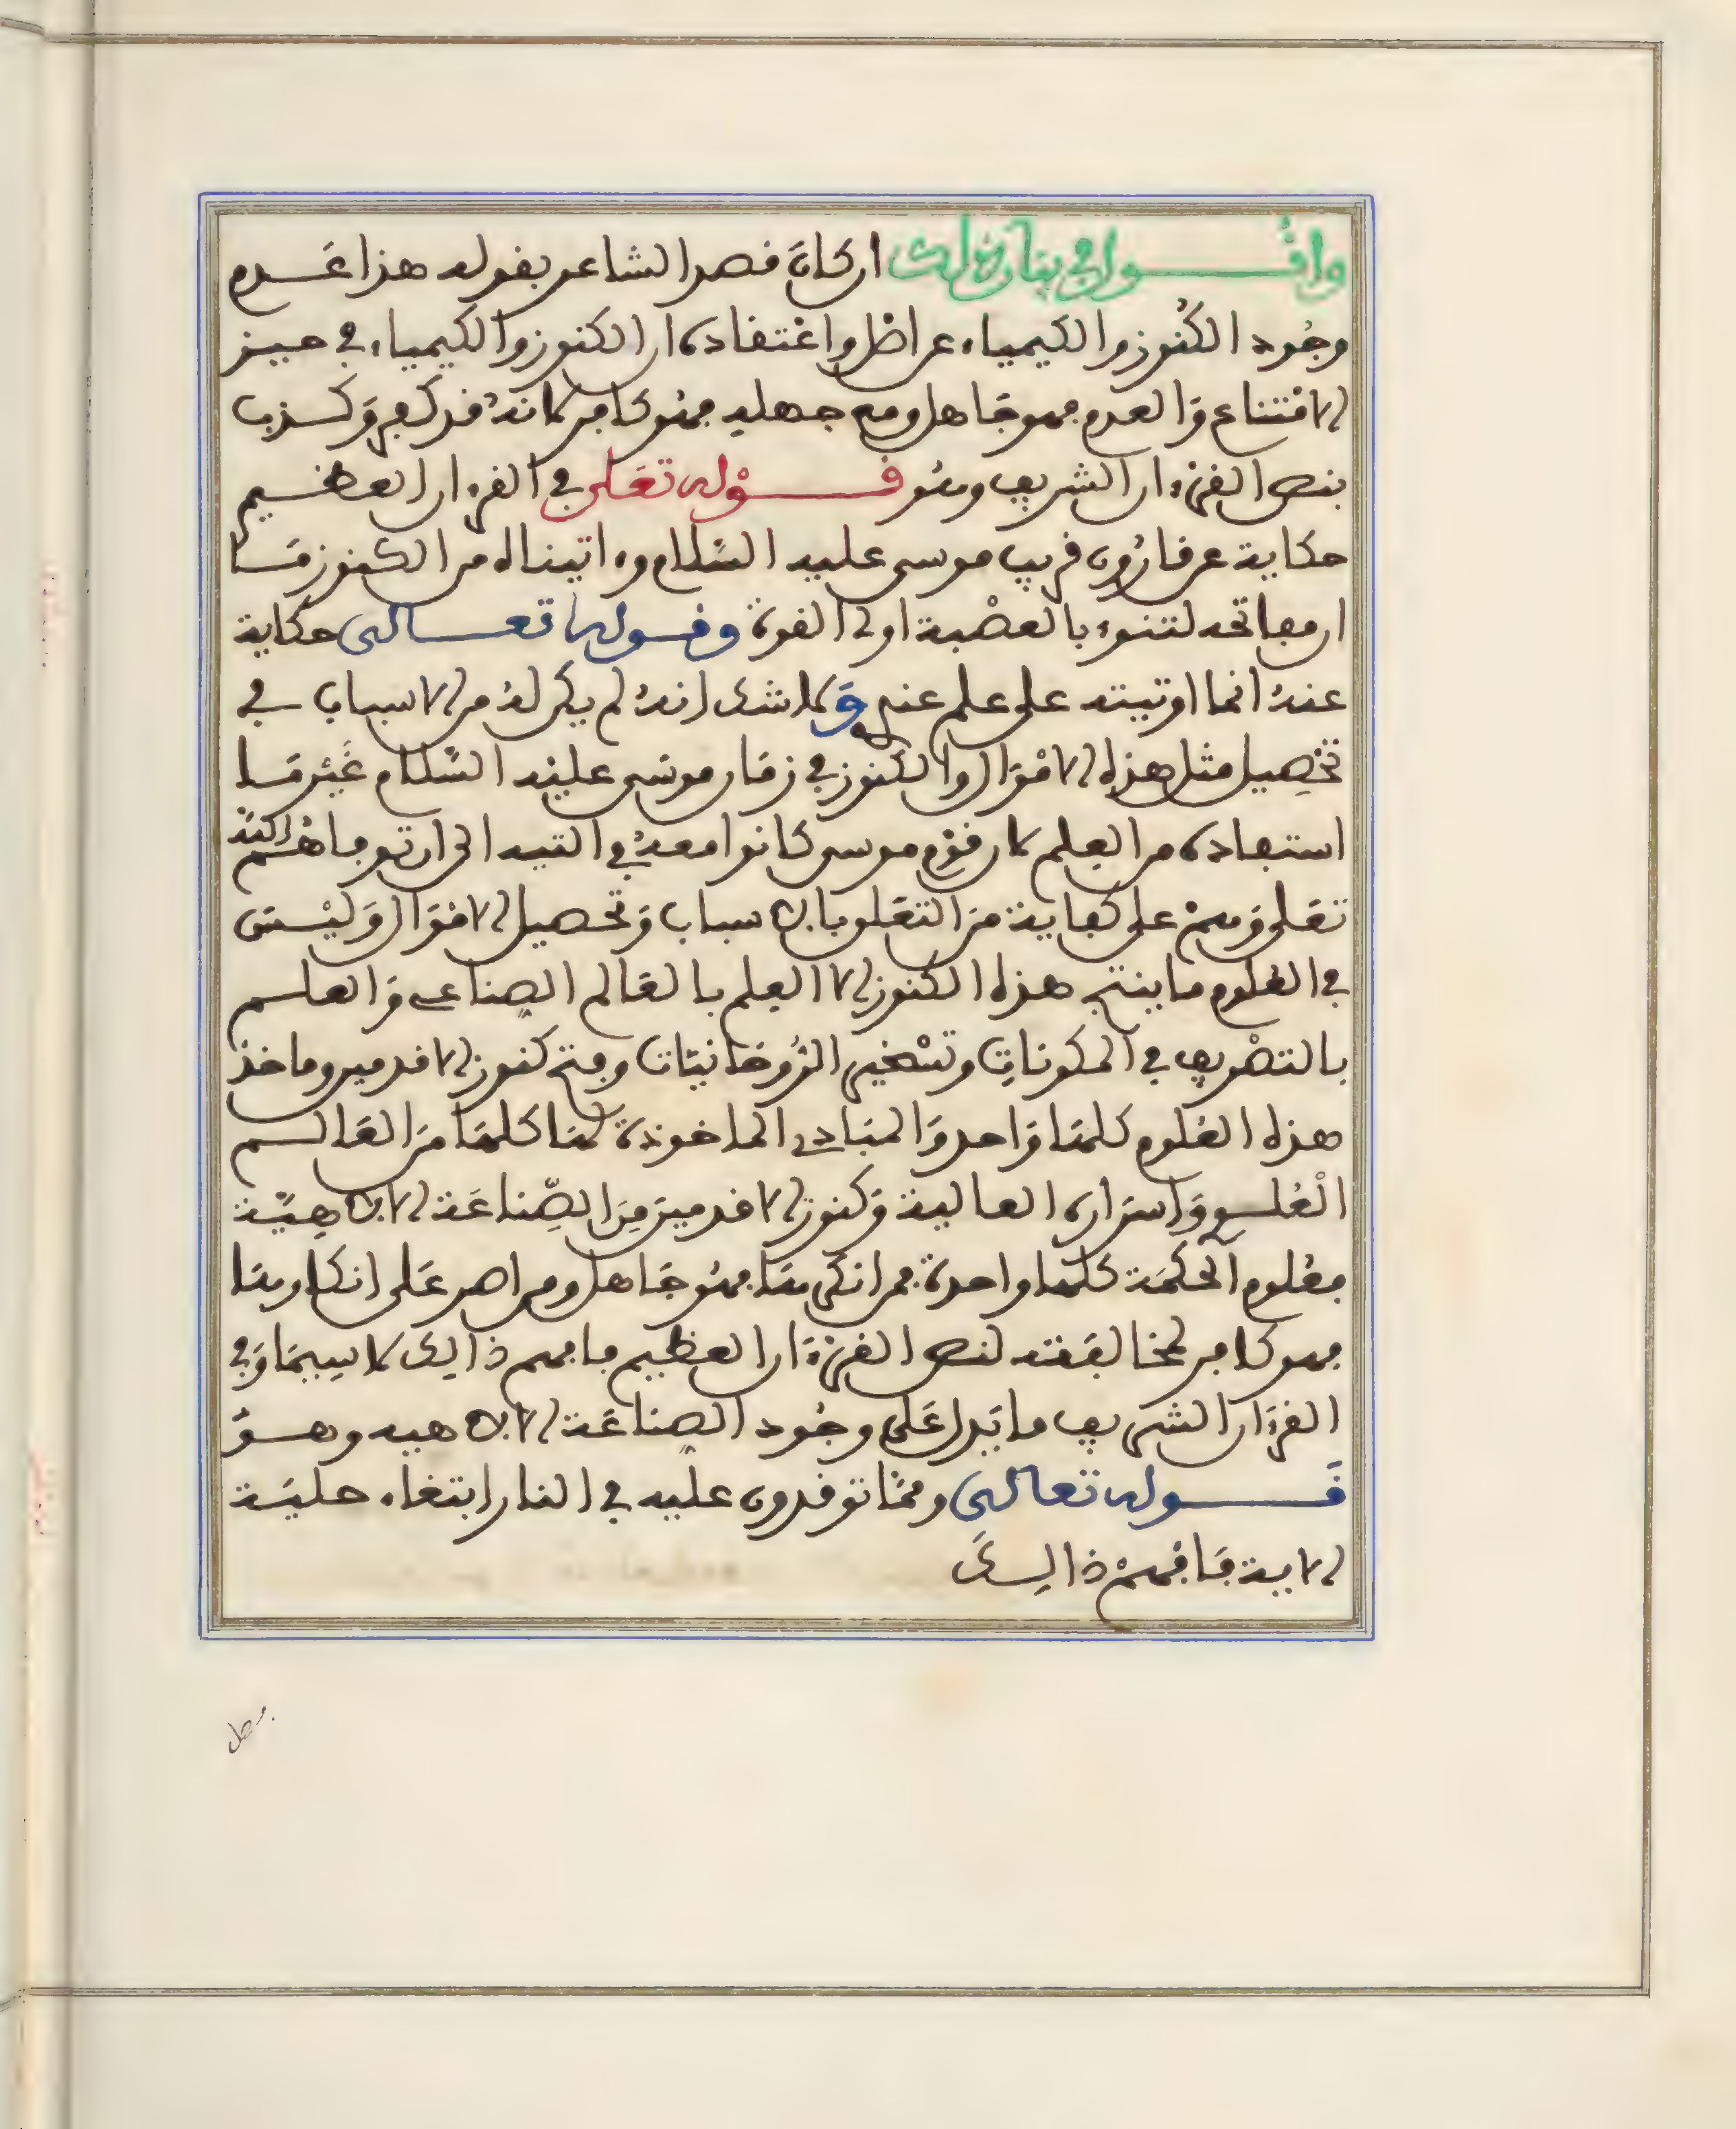 وأقول في بيان ذلك ان كان قصد الشاعر بقوله هذا عدم
وجود الكنوز والكيمياء عن اصل واعتقاده ان الكنوز والكيمياء في حيز
الامتناع والعدم فهو جاهل ومع جهله فهو كافر لانه قد كفر وكذب
بنص القرءان الشريف وهو قوله تعلى في القرءان العظيم
حكاية عن قارون قريب موسى عليه السلام وءاتيناه من الكنوز ما
ان مفاتحه لتنوء بالعصبة اولى القوة وقوله تعالى حكاية
عنه انما اوتيته على علم عندي ولا شك انه لم يكن له من الاسباب في
تحصيل مثل هذه الاموال والكنوز في زمان موسى عليه السلام غير ما
استفاده من العلم لان قوم موسى كانوا معه في التيه الى ان توفاهم الله
تعلى وهم على كفاية من التعلق بالاسباب وتحصيل الاموال وليس
في العلوم ما ينتج هذه الكنوز الا العلم بالعالم الصناعي والعلم
بالتصريف في المكونات وتسخير الروحانيات وفتح كنوز الاقدمين وماخذ
هذه العلوم كلها واحد والمبادي الماخوذة لها كلها من العالم
العلوي واسراره العالية وكنوز الاقدمين من الصناعة الالاهية
فعلوم الحكمة كلها واحدة فمن انكرها فهو جاهل ومن اصر على انكارها
فهو كافر لمخالفته لنص القرءان العظيم فافهم ذالك لا سيما وفي
القرءان الشريف ما يدل على وجود الصناعة الالاهيه وهو
قوله تعالى ومما توقدون عليه في النار ابتغاء حلية
الاية فافهم ذالك
فصل